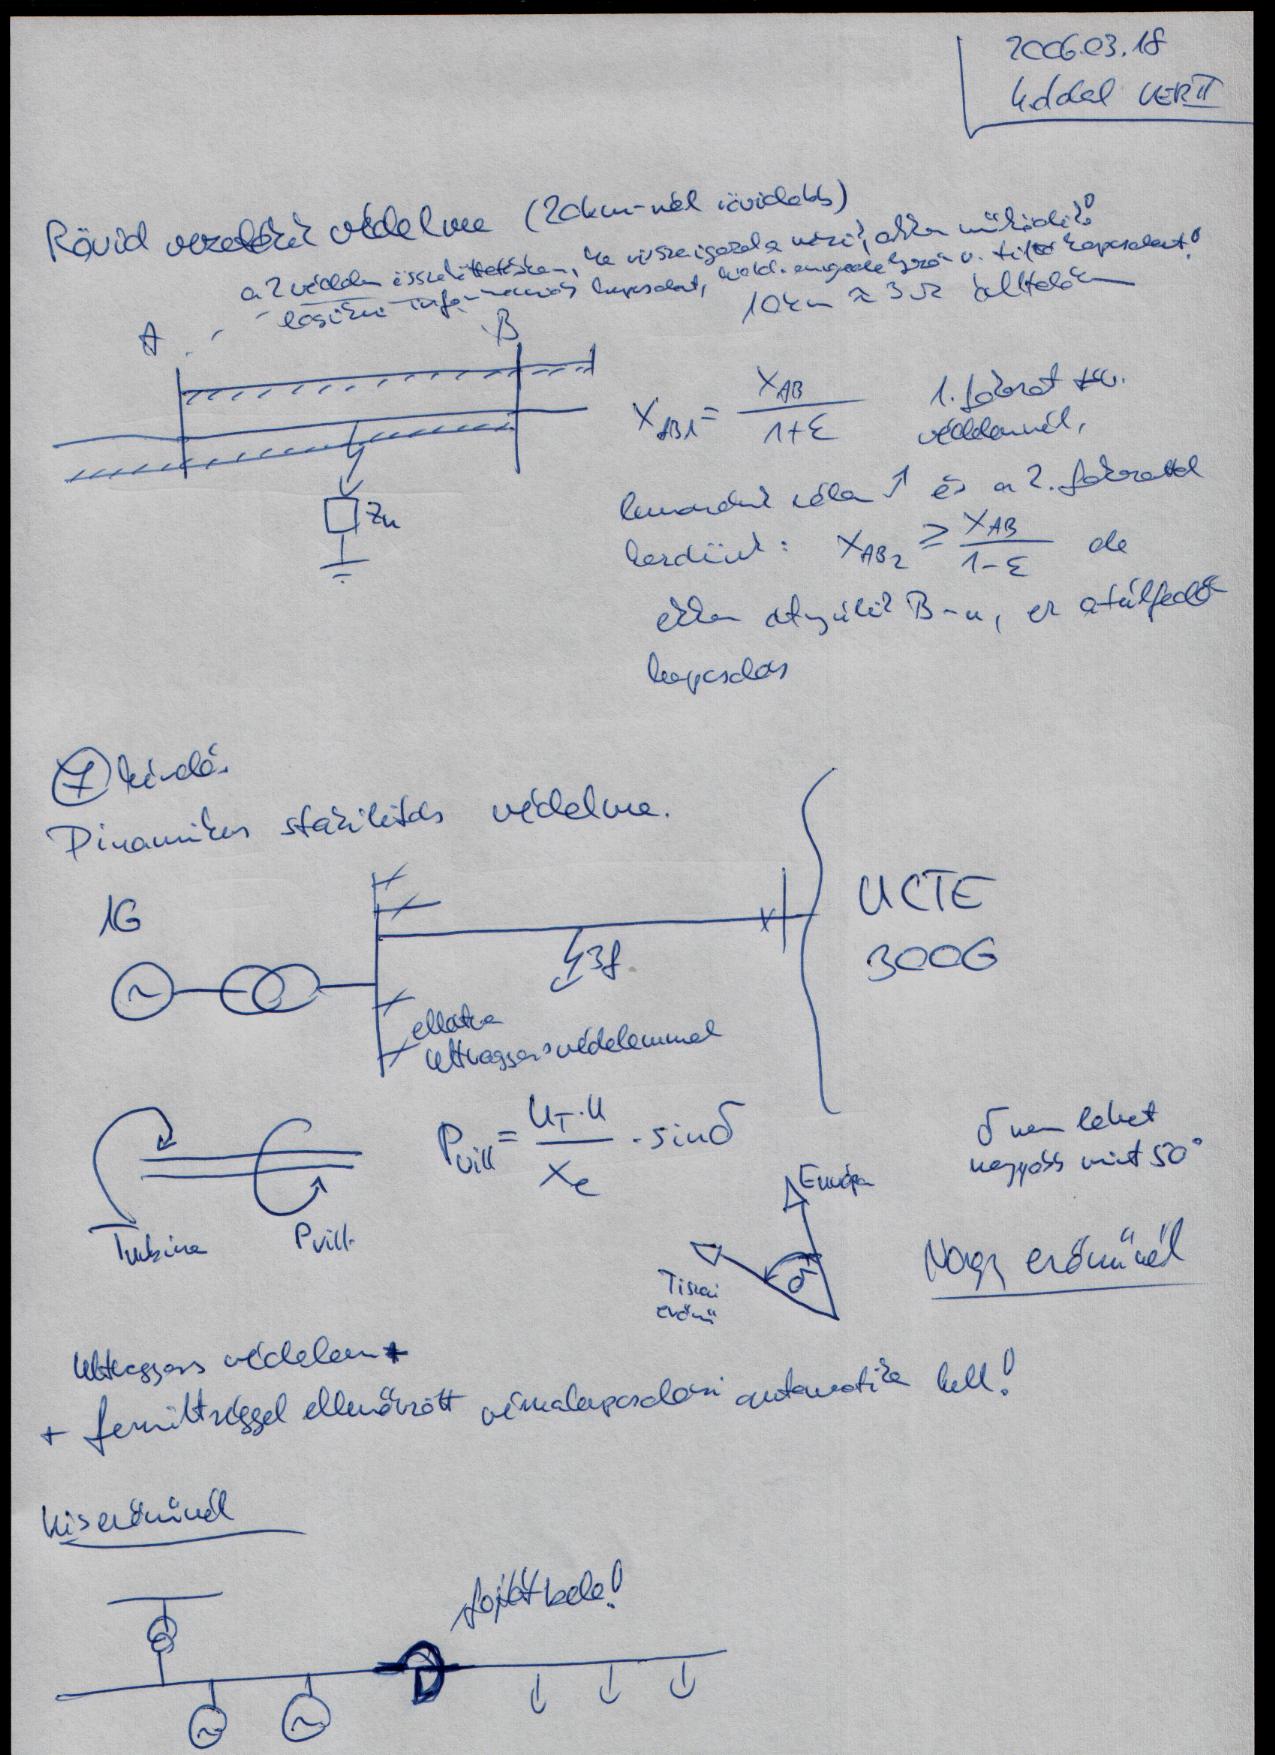 2006.03.18
4. oldal VER II
Rövid vezetékek védelme (20km-nél rövidebb)
a 2 védelem összeköttetésben, ha visszaigazol a másik, akkor működik!
logikai információs kapcsolat, küld engedélyező v. tiltó kapcsolást!
10km ≈ 3Ω
A
B
X_AB1 = X_AB / 1+ε
1. fokozat
védelemnél,
és a 2. fokozattal
kezdünk: X_AB2 ≥ X_AB / 1-ε de
ekkor átnyúlik B-n, ez a túlfedő
kapcsolás
Zh
7 kérdés
Dinamikus stabilitás védelme.
1G
3f
UCTE
300G
ellátva
ultragyors védelemmel
Turbina
Pvill.
Pvill = U_T·U / X_e · sinδ
δ nem lehet
nagyobb mint 50°
Európa
Tiszai
erőmű
δ
Nagy erőműnél
Ultragyors védelem +
+ feszültséggel ellenőrzött visszakapcsolási automatika kell!
Kiserőműnél
fojtót bele!